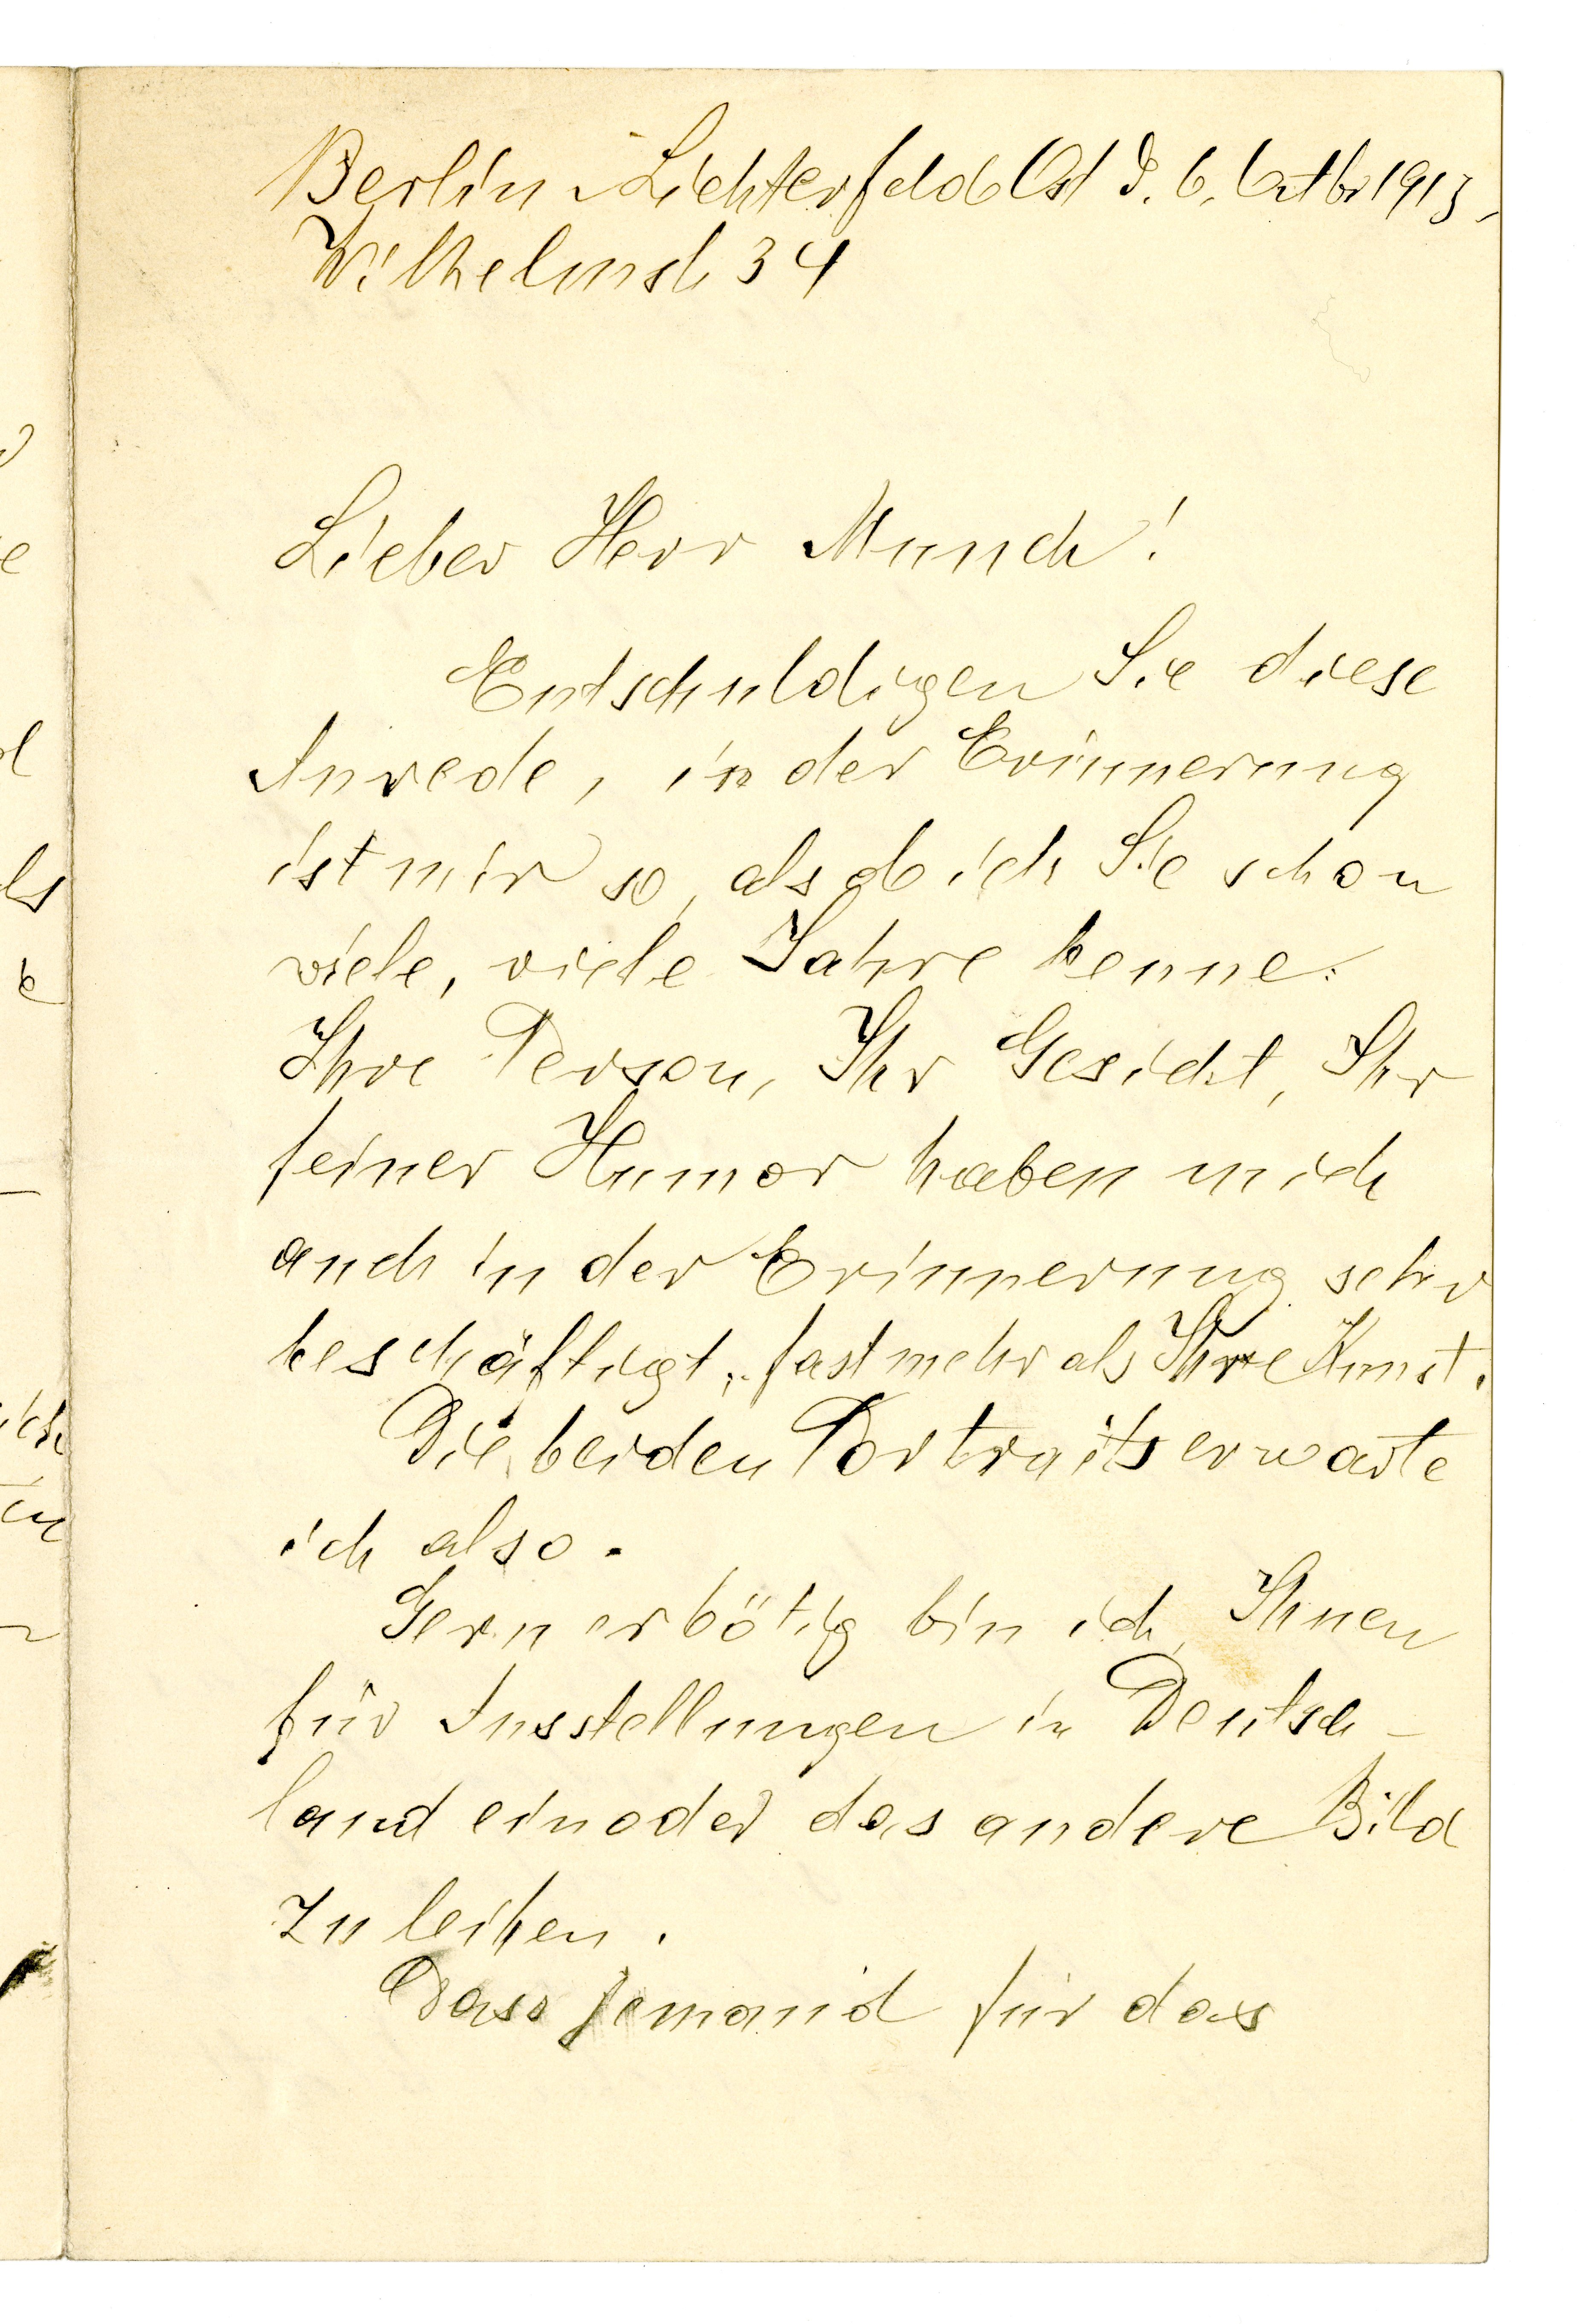 Berlin-Lichterfelde Ost d. 6. Octbr 1913.
Wilhelmstr 34
Lieber Herr Munch!
Entschuldigen Sie diese
Anrede, in der Erinnerung
ist mir so, als ob ich Sie schon
viele, viele Jahre kenne.
Ihre Person, Ihr Gesicht, Ihr
feiner Humor haben mich
auch in der Erinnerung sehr
beschäftigt, fast mehr als Ihre Kunst.
Die beiden Portraits erwarte
ich also.
Gern erbötig bin ich, Ihnen
für Ausstellungen in Deutsch-
land ein oder das andere Bild
zu leihen.
Dass jemand für das